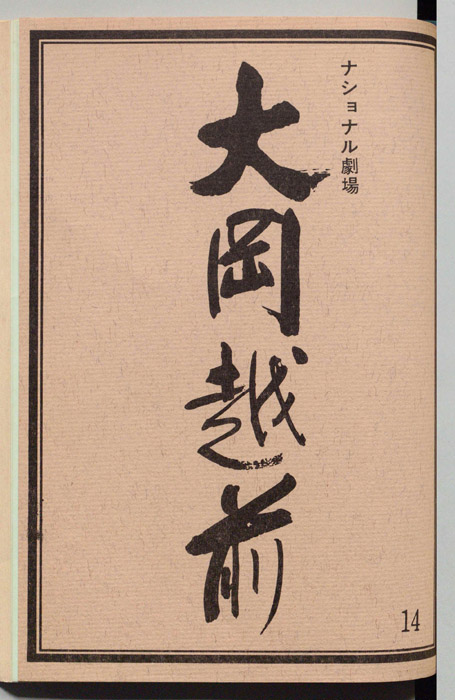 ナショナル劇場
大岡越前
14